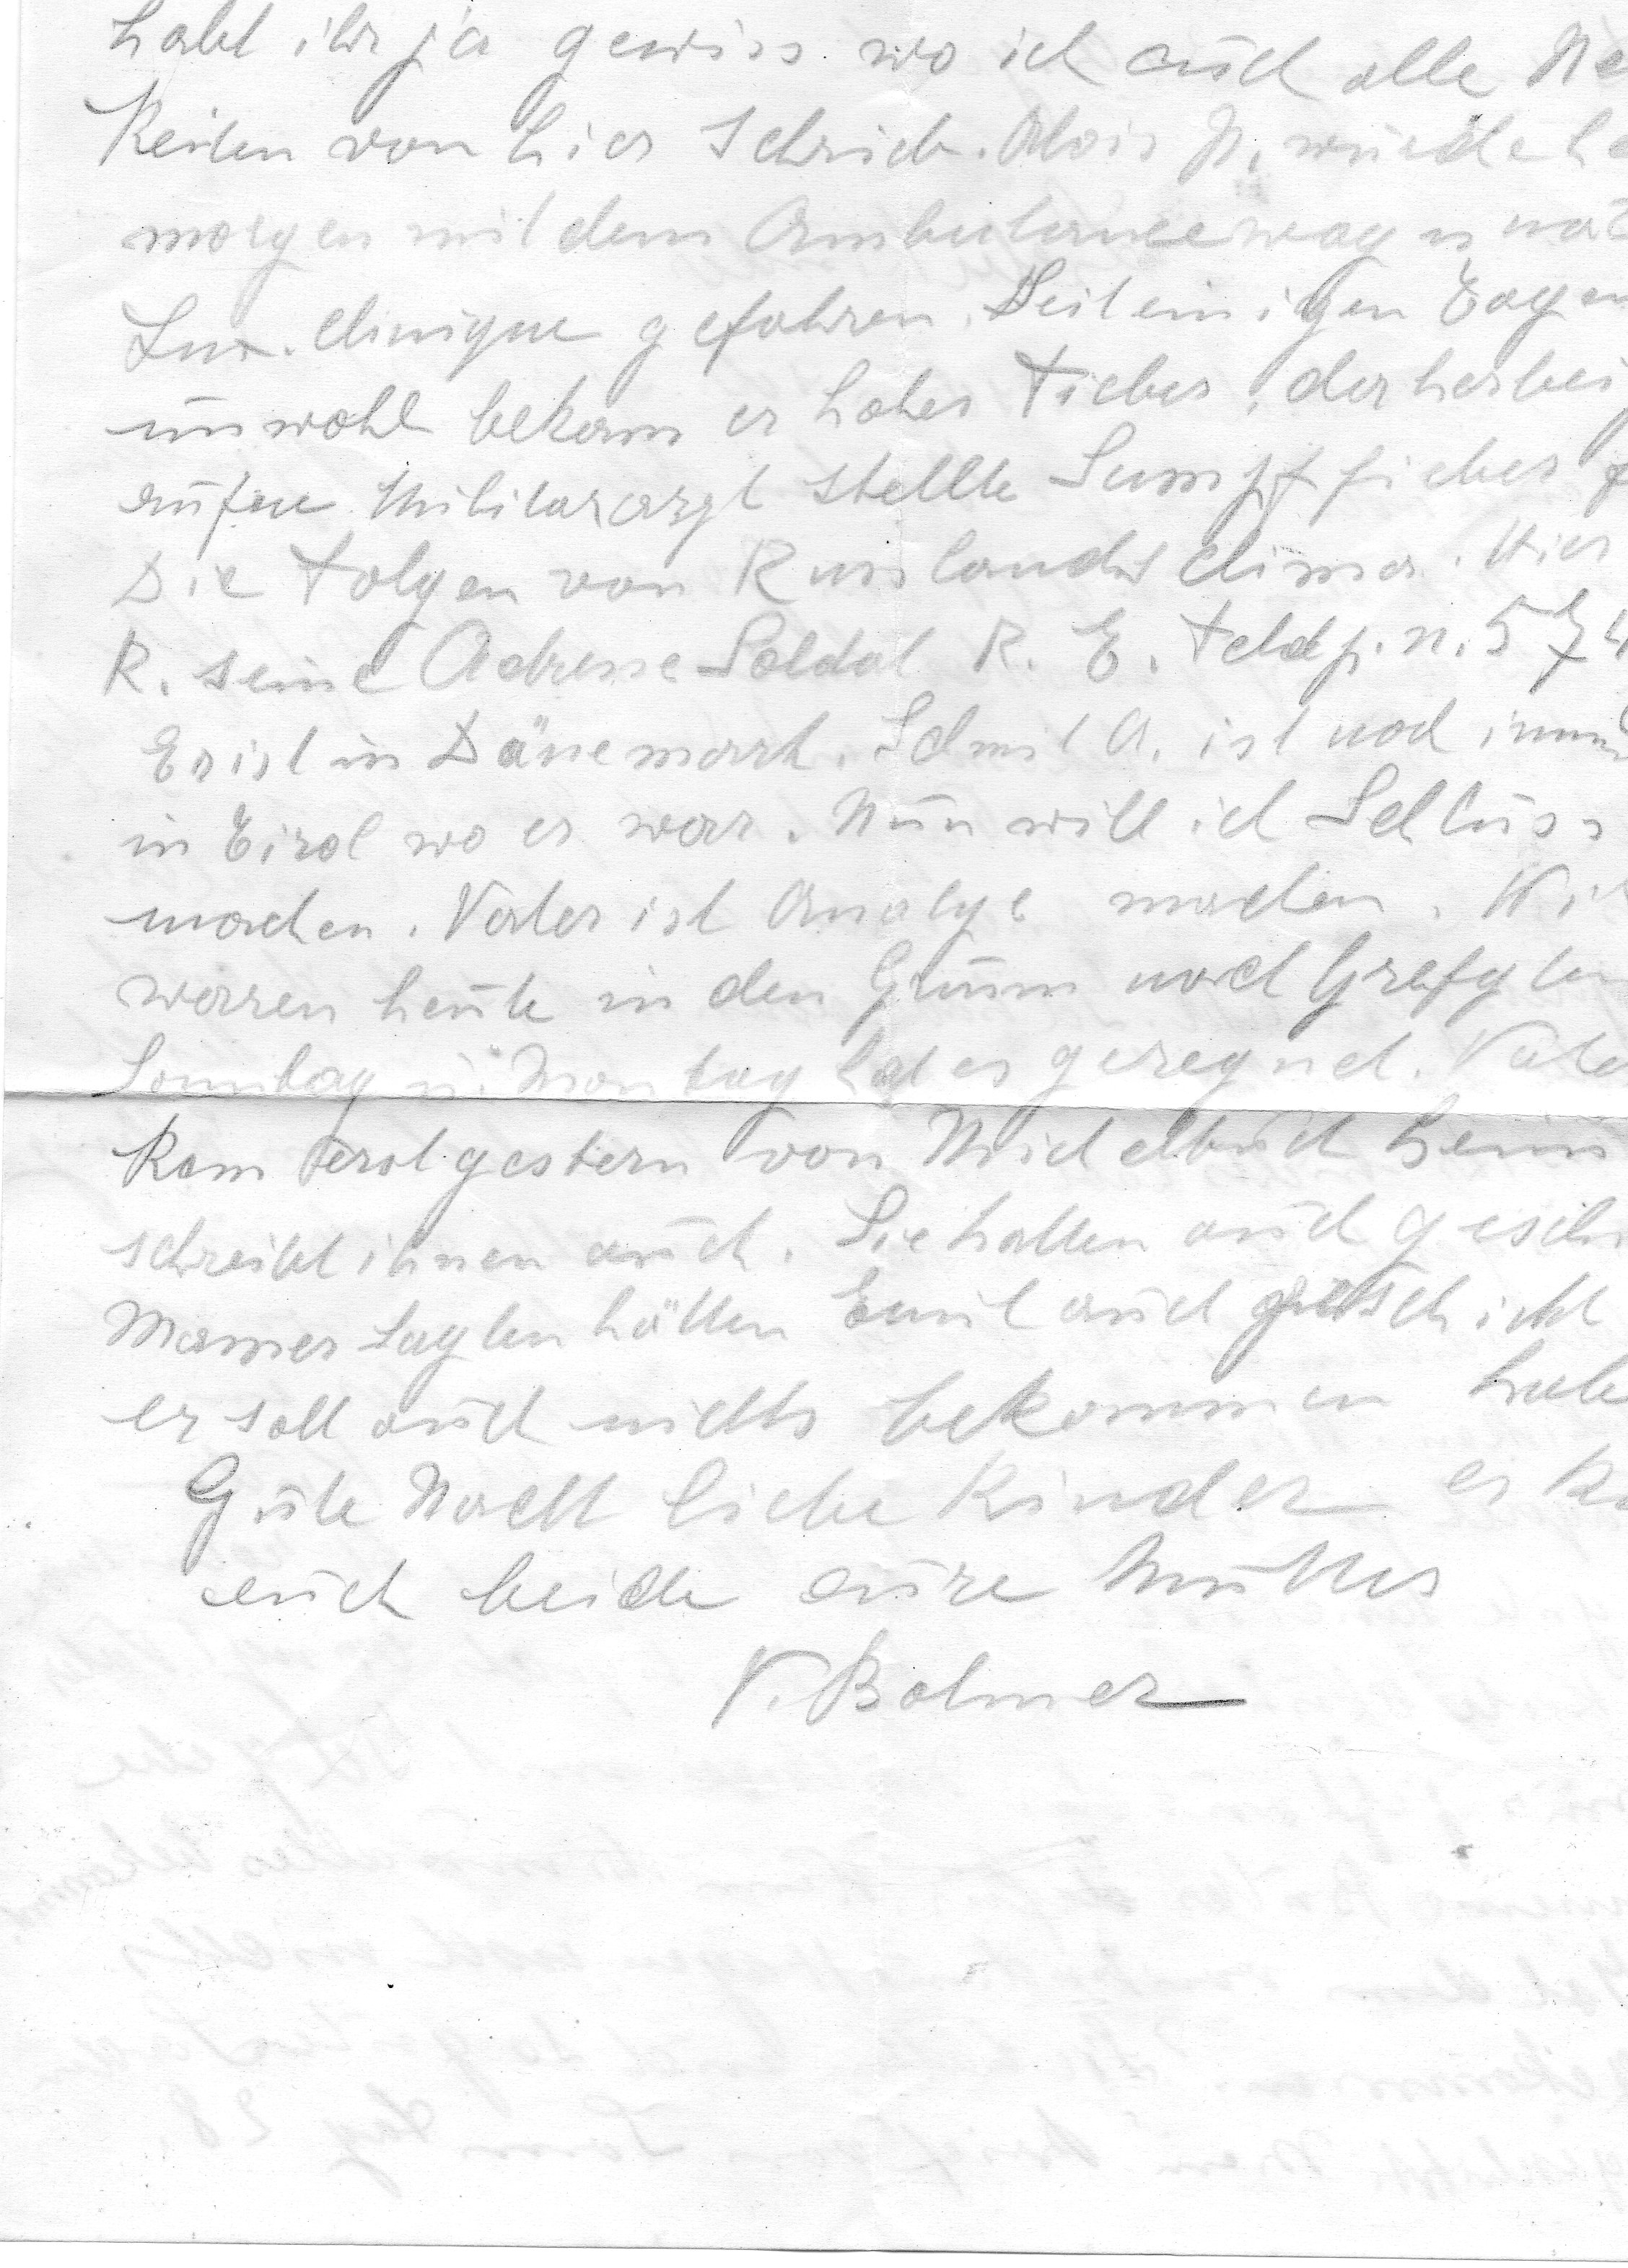 habt ihr ja gewiss. wo ich auch alle Ne
keiten von hier schrieb. Alois N. wurde he
morgen mit dem Ambulancewagen nac
Lux. Clinique gefahren. Seit einigen Tagen
unwohl bekam er hohes Fieber, der herbei g
rufene Militararzt stellte Sumpffieber f
Die Folgen von Russlands Clima. Hier
R. seine Adresse Soldat R. E. Feldp. n. 574
Er ist in Dänemark. Schmit A. ist noch imm
in Tirol wo er war. Nun will ich Schluss
machen. Vater ist Analyse machen. Wir
warren heute in den Grumm nach
Sonntag u. Montag hat es geregnet. Vate
kam erst gestern von Michelbuch heim
schreibt ihnen auch. Sie hatten auch geschi
Mamer sagten hätten Emil auch geschickt
er soll auch nichts bekommen habe
Gute Nacht liebe Kinder es kü
euch beide eure Mutter
V. Bolmer